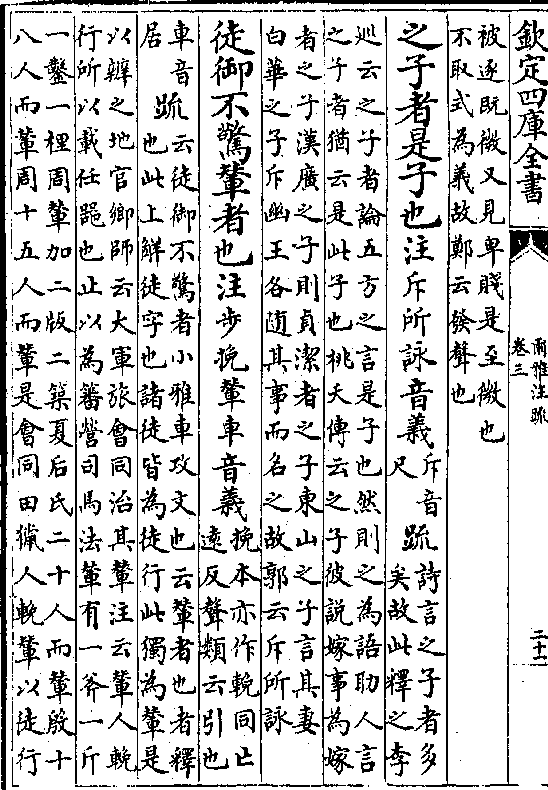 欽定四庫全書
爾雅注疏
卷三
二十一
被逐既微又見卑賤是至微也
不取式為義故鄭云發聲也
之子者是子也注斥所詠音義
斥音
尺
疏
詩言之子者多
矣故此釋之李
巡云之子者論五方之言是子也然則之為語助人言
之子者猶云是此子也桃夭傳云之子彼説嫁事為嫁
者之子漢廣之子則貞潔者之子東山之子言其妻
白華之子斥幽王各隨其事而名之故郭云斥所詠
徒御不驚輦者也注步挽輦車音義
挽本亦作輓同亡
遠反聲類云引也
車音
居
疏
云徒御不驚者小雅車攻文也云輦者也者釋
也此上解徒字也諸徒皆為徒行此獨為輦是
以辨之地官鄉師云大軍旅會同治其輦注云輦人輓
行所以載任器也止以為蕃營司馬法輦有一斧一斤
一鑿一梩周輦加二版二築夏后氏二十人而輦殷十
八人而輦周十五人而輦是會同田獵人輓輦以徒行